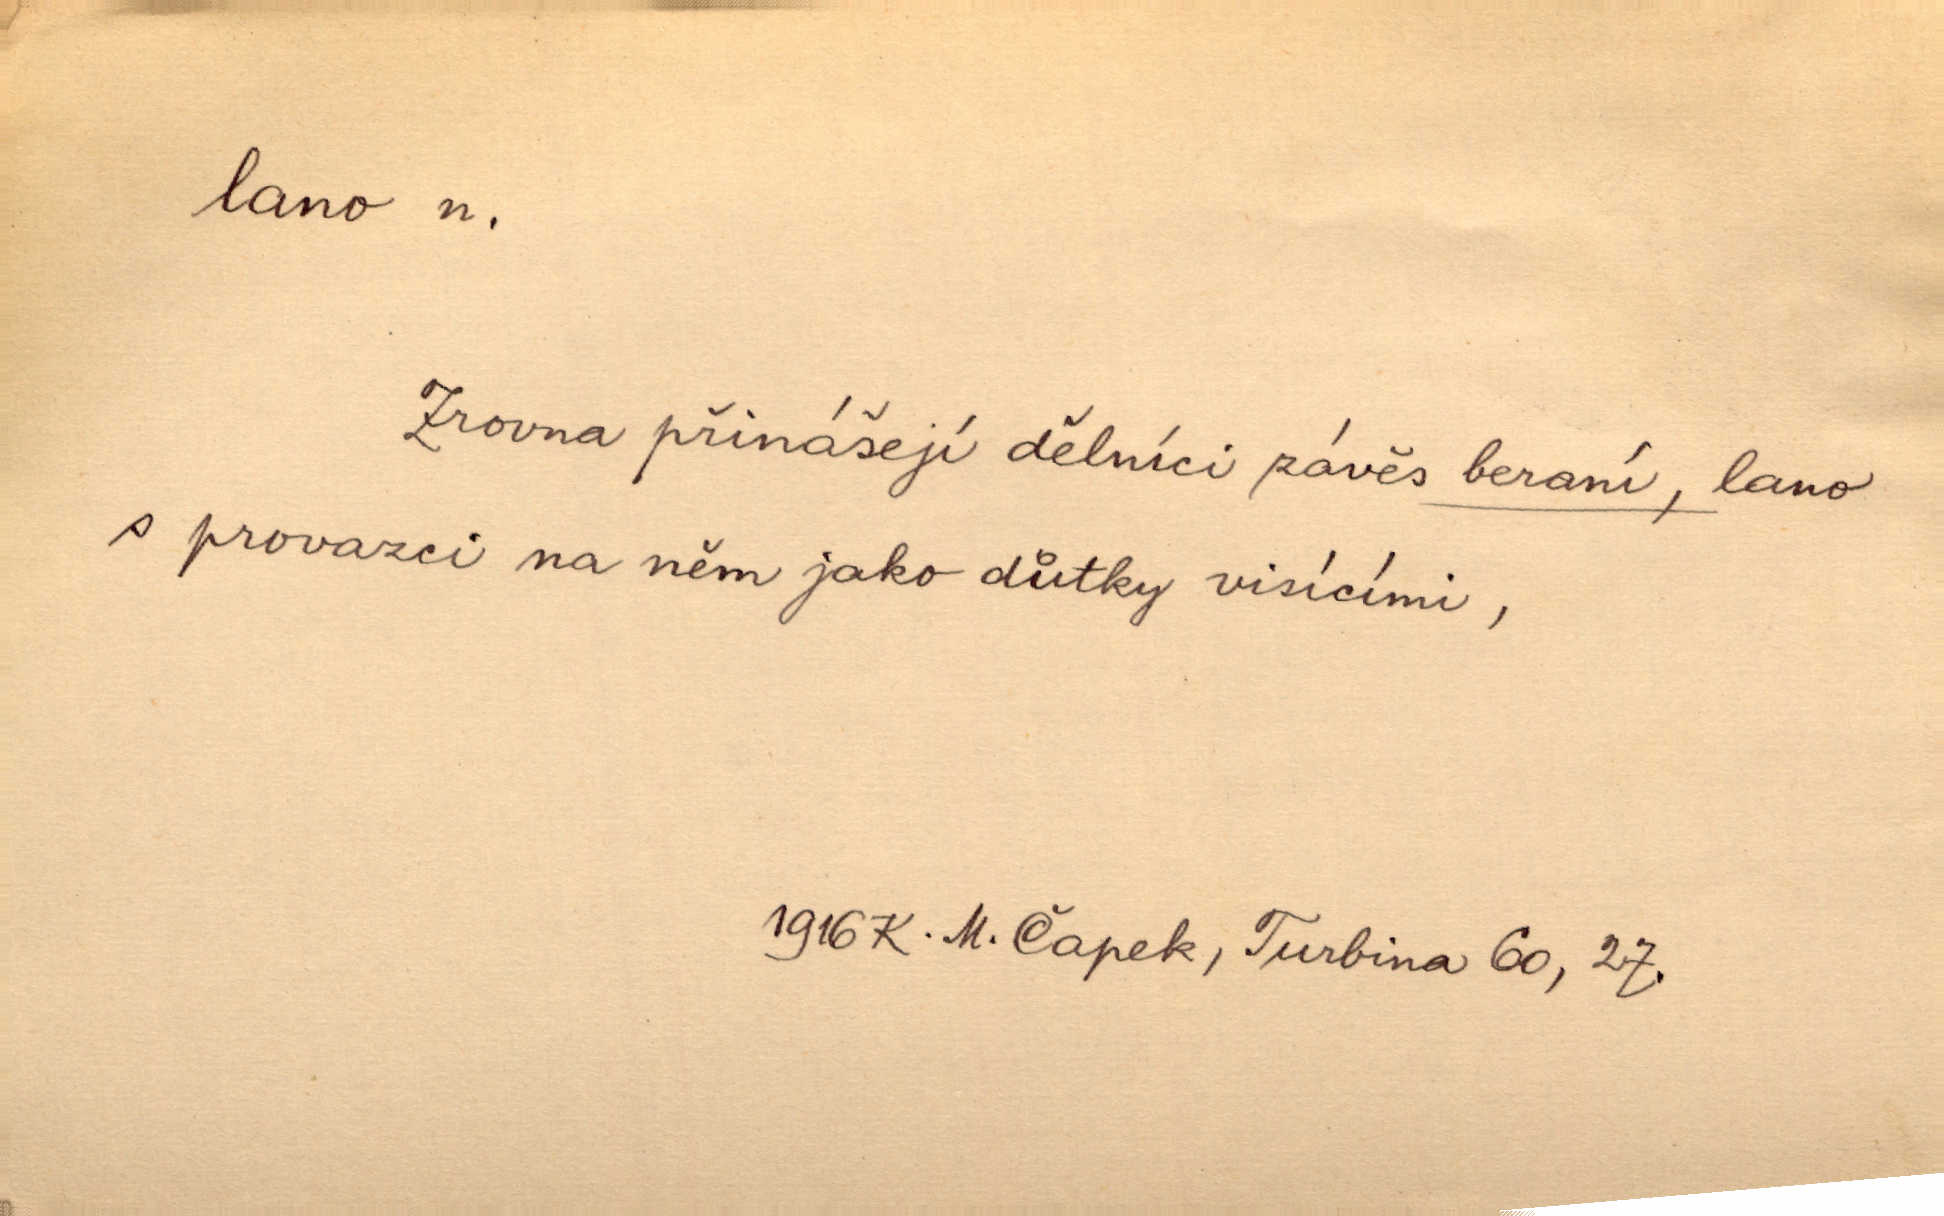 lano n.
Zrovna přinášejí dělníci závěs beraní, lano
s provazci na něm jako důtky visícími,
1916 K. M. Čapek, Turbina 60, 27.